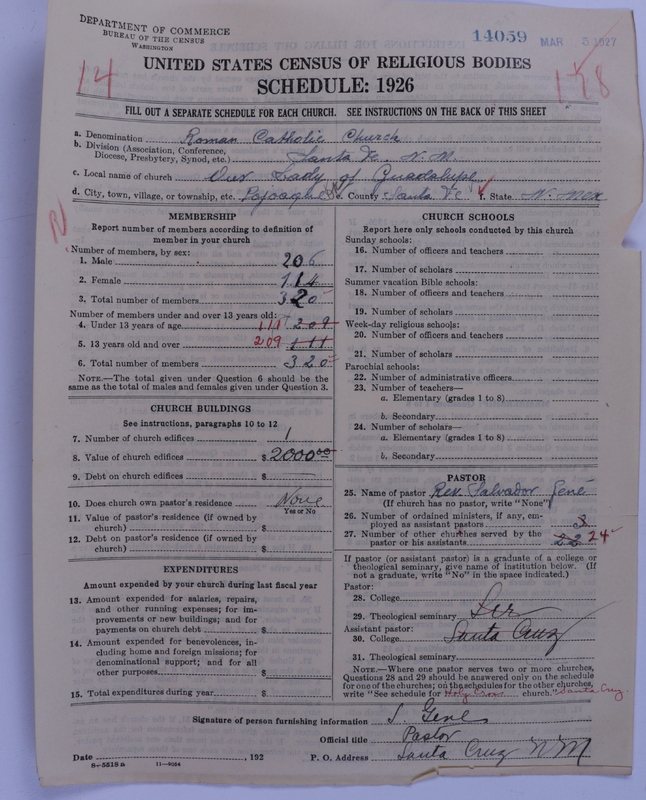 DEPARTMENT OF COMMERCE
BUREAU OF THE CENSUS
WASHINGTON
14059 MAR 5 1927
UNITED STATES CENSUS OF RELIGIOUS BODIES
SCHEDULE: 1926
14
178
FILL OUT A SEPARATE SCHEDULE FOR EACH CHURCH. SEE INSTRUCTIONS ON THE BACK OF THIS SHEET
a. Denomination Roman Catholic Church
b. Division (Association, Conference, Diocese, Presbytery, Synod, etc.) Santa Fe, N. M.
c. Local name of church Our Lady of Guadalupe
d. City, town, village, or township, etc. Pojoaque e. County Santa Fe f. State N. Mex
MEMBERSHIP
Report number of members according to definition of
member in your church
Number of members, by sex:
1. Male 206
2. Female 114
3. Total number of members 320
Number of members under and over 13 years old:
4. Under 13 years of age 111 209
5. 13 years old and over 209 111
6. Total number of members 320
NOTE.—The total given under Question 6 should be
same as the total of males and females given under Question 3.
CHURCH BUILDINGS
See instructions, paragraphs 10 to 12
7. Number of church edifices 1
8. Value of church edifices $ 2000.00
9. Debt on church edifices $
10. Does church own pastor's residence None
Yes or No
11. Value of pastor's residence (if owned by
church) $
12. Debt on pastor's residence (if owned by
church) $
EXPENDITURES
Amount expended by your church during last fiscal year
13. Amount expended for salaries, repairs,
and other running expenses; for im-
provements or new buildings; and for
payments on church debt $
14. Amount expended for benevolences, in-
cluding home and foreign missions; for
denominational support; and for all
other purposes $
15. Total expenditures during year $
CHURCH SCHOOLS
Report here only schools conducted by this church
Sunday schools:
16. Number of officers and teachers
17. Number of scholars
Summer vacation Bible schools:
18. Number of officers and teachers
19. Number of scholars
Week-day religious schools:
20. Number of officers and teachers
21. Number of scholars
Parochial schools:
22. Number of administrative officers
23. Number of teachers—
a. Elementary (grades 1 to 8)
b. Secondary
24. Number of scholars—
a. Elementary (grades 1 to 8)
b. Secondary
PASTOR
25. Name of pastor Rev. Salvador Gené
(If church has no pastor, write "None")
26. Number of ordained ministers, if any, em-
ployed as assistant pastors 3
27. Number of other churches served by the
pastor or his assistants 24
If pastor (or assistant pastor) is a graduate of a college or
theological seminary, give name of institution below. (If
not a graduate, write "No" in the space indicated.)
Pastor:
28. College
29. Theological seminary See
Assistant pastor:
30. College Santa Cruz
31. Theological seminary
NOTE.—Where one pastor serves two or more churches,
Questions 28 and 29 should be answered only on the schedule
for one of the churches; on the schedules for the other churches,
write "See schedule for Holy Cross church." Santa Cruz
Signature of person furnishing information S. Gene
Official title Pastor
Date , 192 P. O. Address Santa Cruz N M
8-5518 a 11-9084